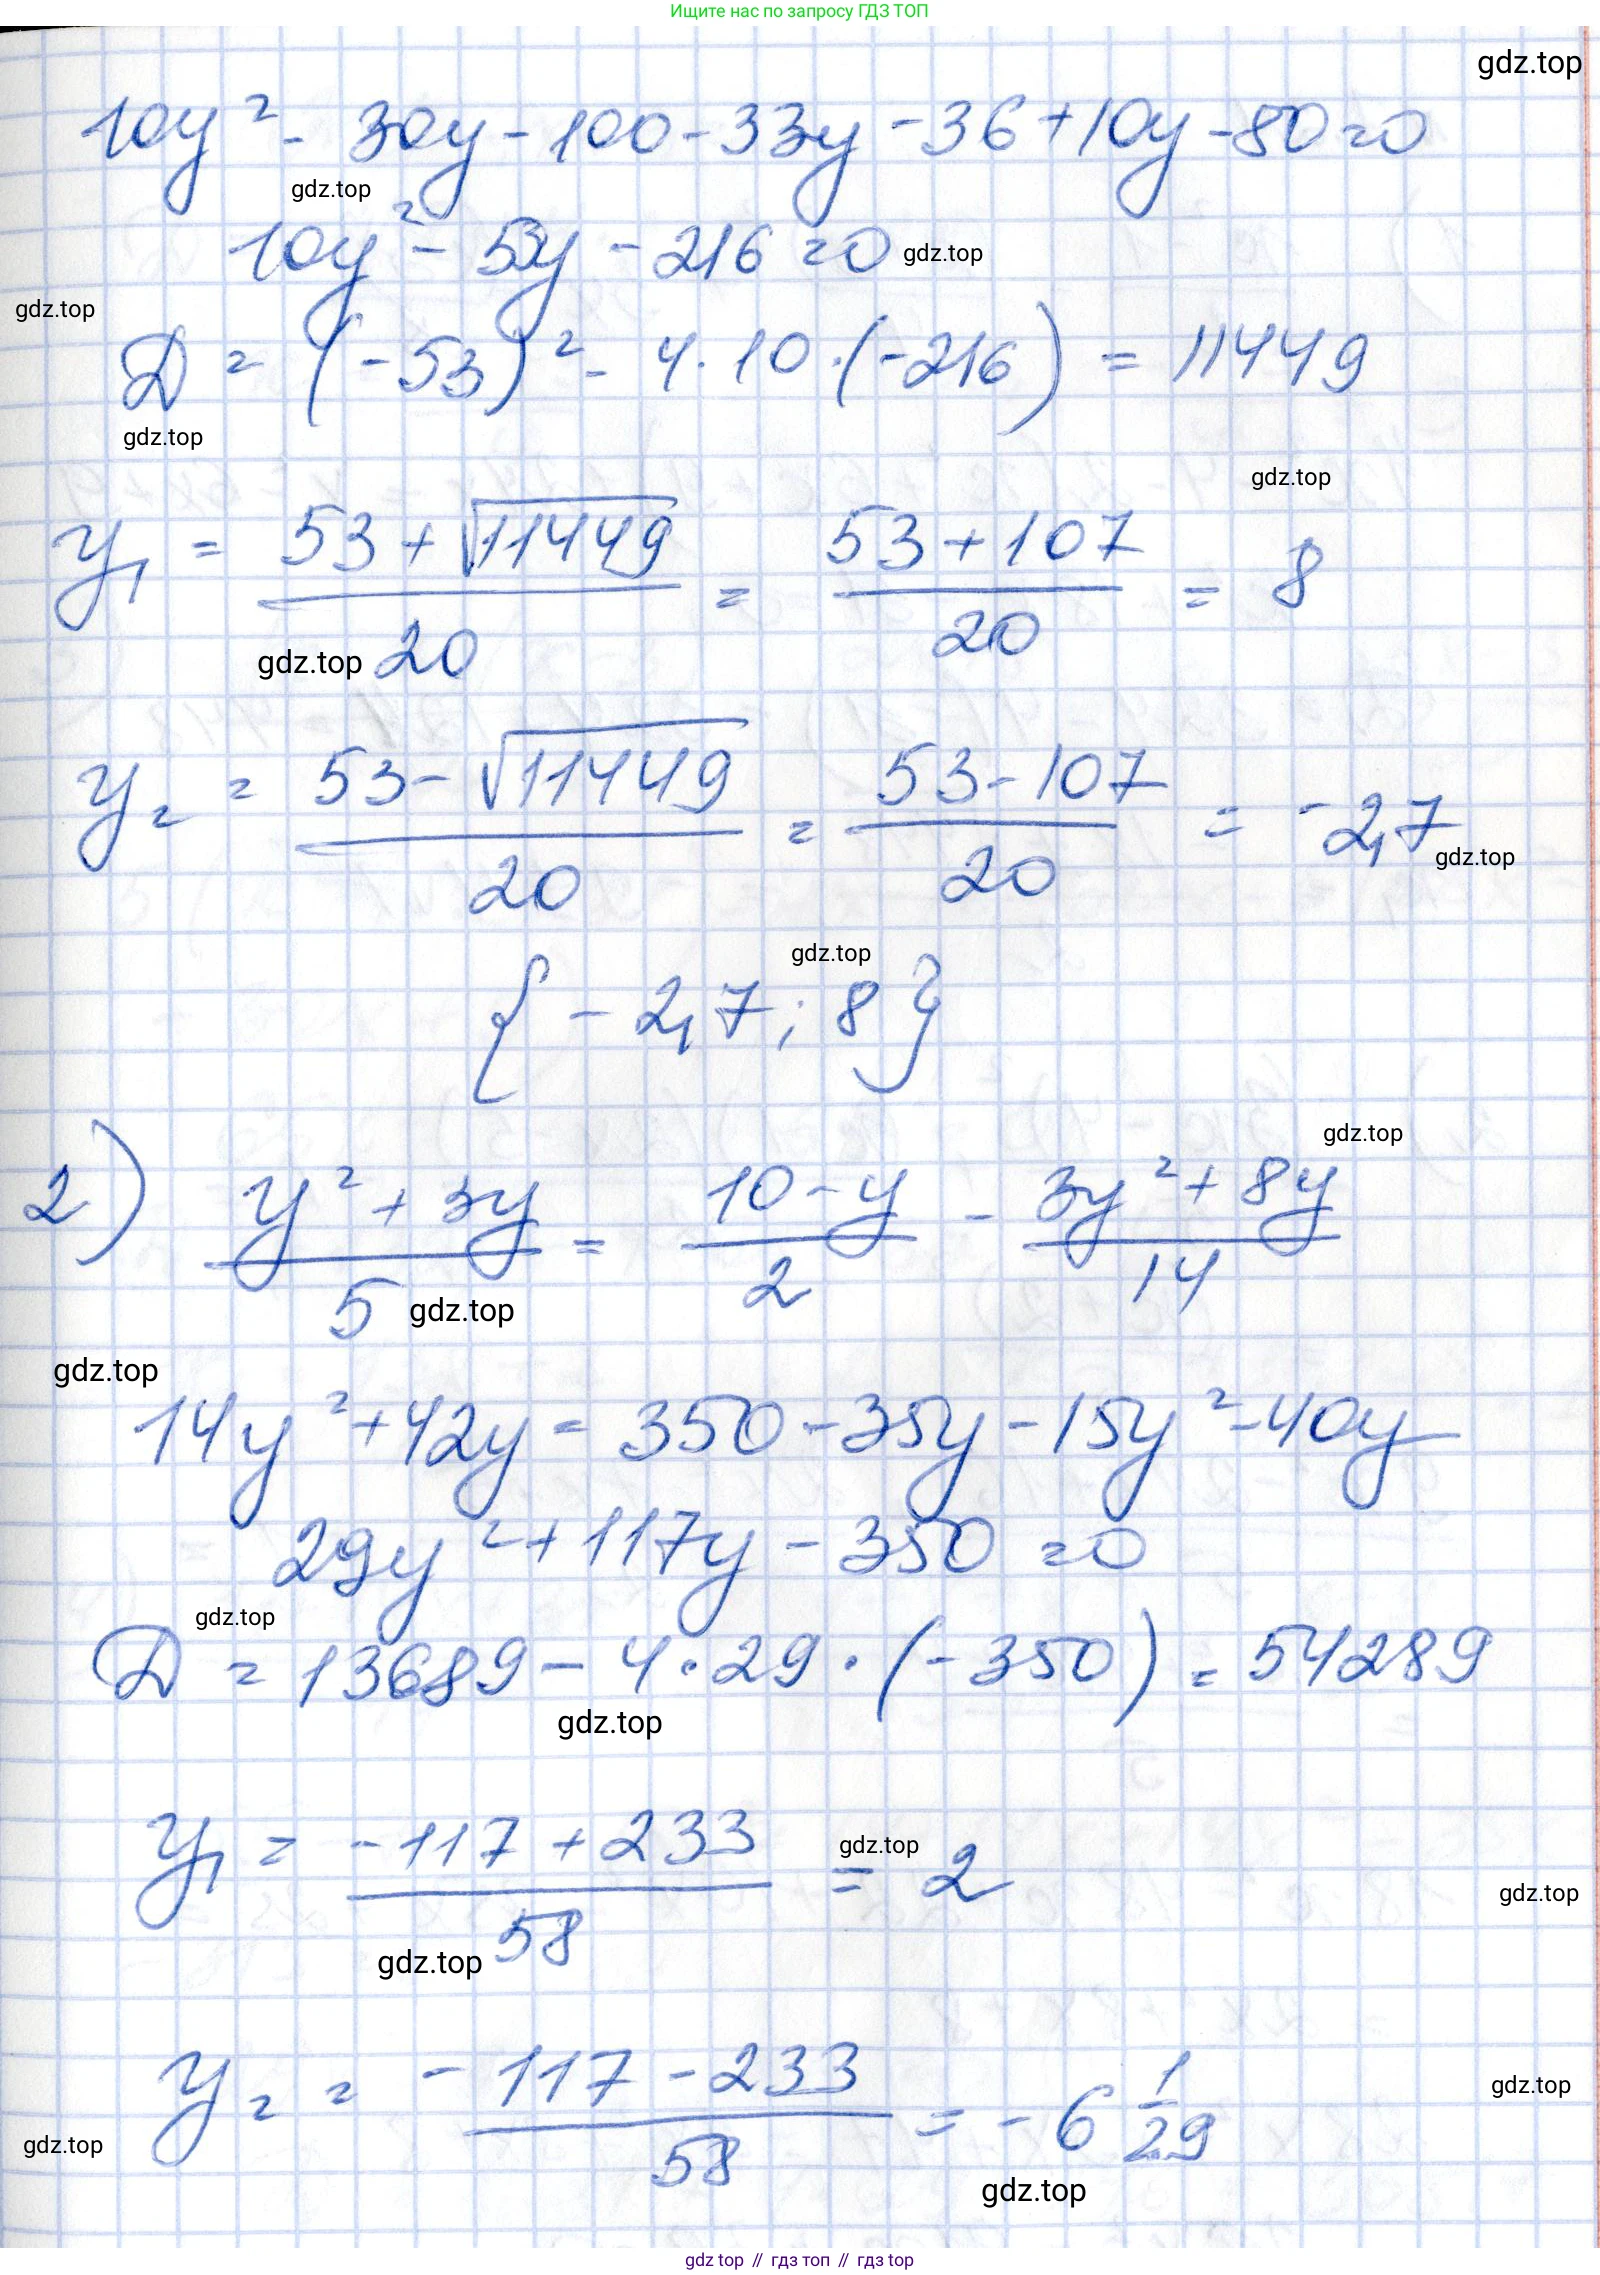 Ищите нас по запросу ГДЗ ТОП
gdz.top
10y² - 30y - 100 - 33y - 36 + 10y - 80 = 0
gdz.top
10y² - 53y - 216 = 0 gdz.top
gdz.top
D = (-53)² - 4·10·(-216) = 11449
gdz.top
gdz.top
y₁ = (53 + √11449)/20 = (53 + 107)/20 = 8
gdz.top
y₂ = (53 - √11449)/20 = (53 - 107)/20 = -2,7
gdz.top
gdz.top
{-2,7; 8}
gdz.top
2) (y² + 3y)/5 = (10 - y)/2 - (3y² + 8y)/14
gdz.top
gdz.top
14y² + 42y = 350 - 35y - 15y² - 40y
29y² + 117y - 350 = 0
gdz.top
D = 13689 - 4·29·(-350) = 54289
gdz.top
y₁ = (-117 + 233)/58 = 2
gdz.top
gdz.top
gdz.top
y₂ = (-117 - 233)/58 = -6 1/29
gdz.top
gdz.top
gdz.top
gdz top // гдз топ // гдз top